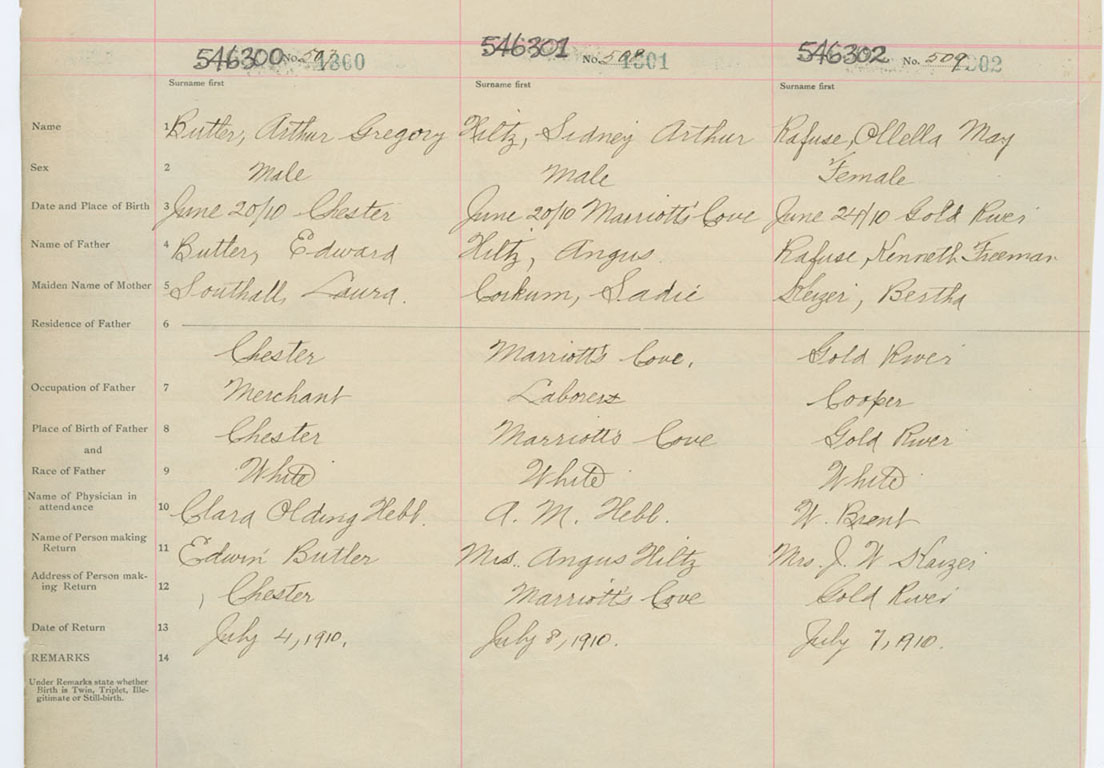 546300 No. 507 1300 546301 No. 508 1301 546302 No. 509 1302
Surname first Surname first Surname first
Name 1 Butler, Arthur Gregory Hiltz, Sidney Arthur Rafuse, Ollella May
Sex 2 Male Male Female
Date and Place of Birth 3 June 20/10 Chester June 20/10 Marriott's Cove June 24/10 Gold River
Name of Father 4 Butler, Edward Hiltz, Angus. Rafuse, Kenneth Freeman
Maiden Name of Mother 5 Southall, Laura. Corkum, Sadie Keizer, Bertha
Residence of Father 6
Chester Marriott's Cove. Gold River
Occupation of Father 7 Merchant Laborer Cooper
Place of Birth of Father 8 Chester Marriott's Cove Gold River
and
Race of Father 9 White White White
Name of Physician in
attendance 10 Clara Olding Hebb. A. M. Hebb. W. Brent
Name of Person making
Return 11 Edwin Butler Mrs. Angus Hiltz Mrs. J. W Kaizer
Address of Person mak-
ing Return 12 , Chester Marriott's Cove Gold River
Date of Return 13 July 4, 1910. July 8, 1910. July 7, 1910.
REMARKS 14
Under Remarks state whether
Birth is Twin, Triplet, Ille-
gitimate or Still-birth.